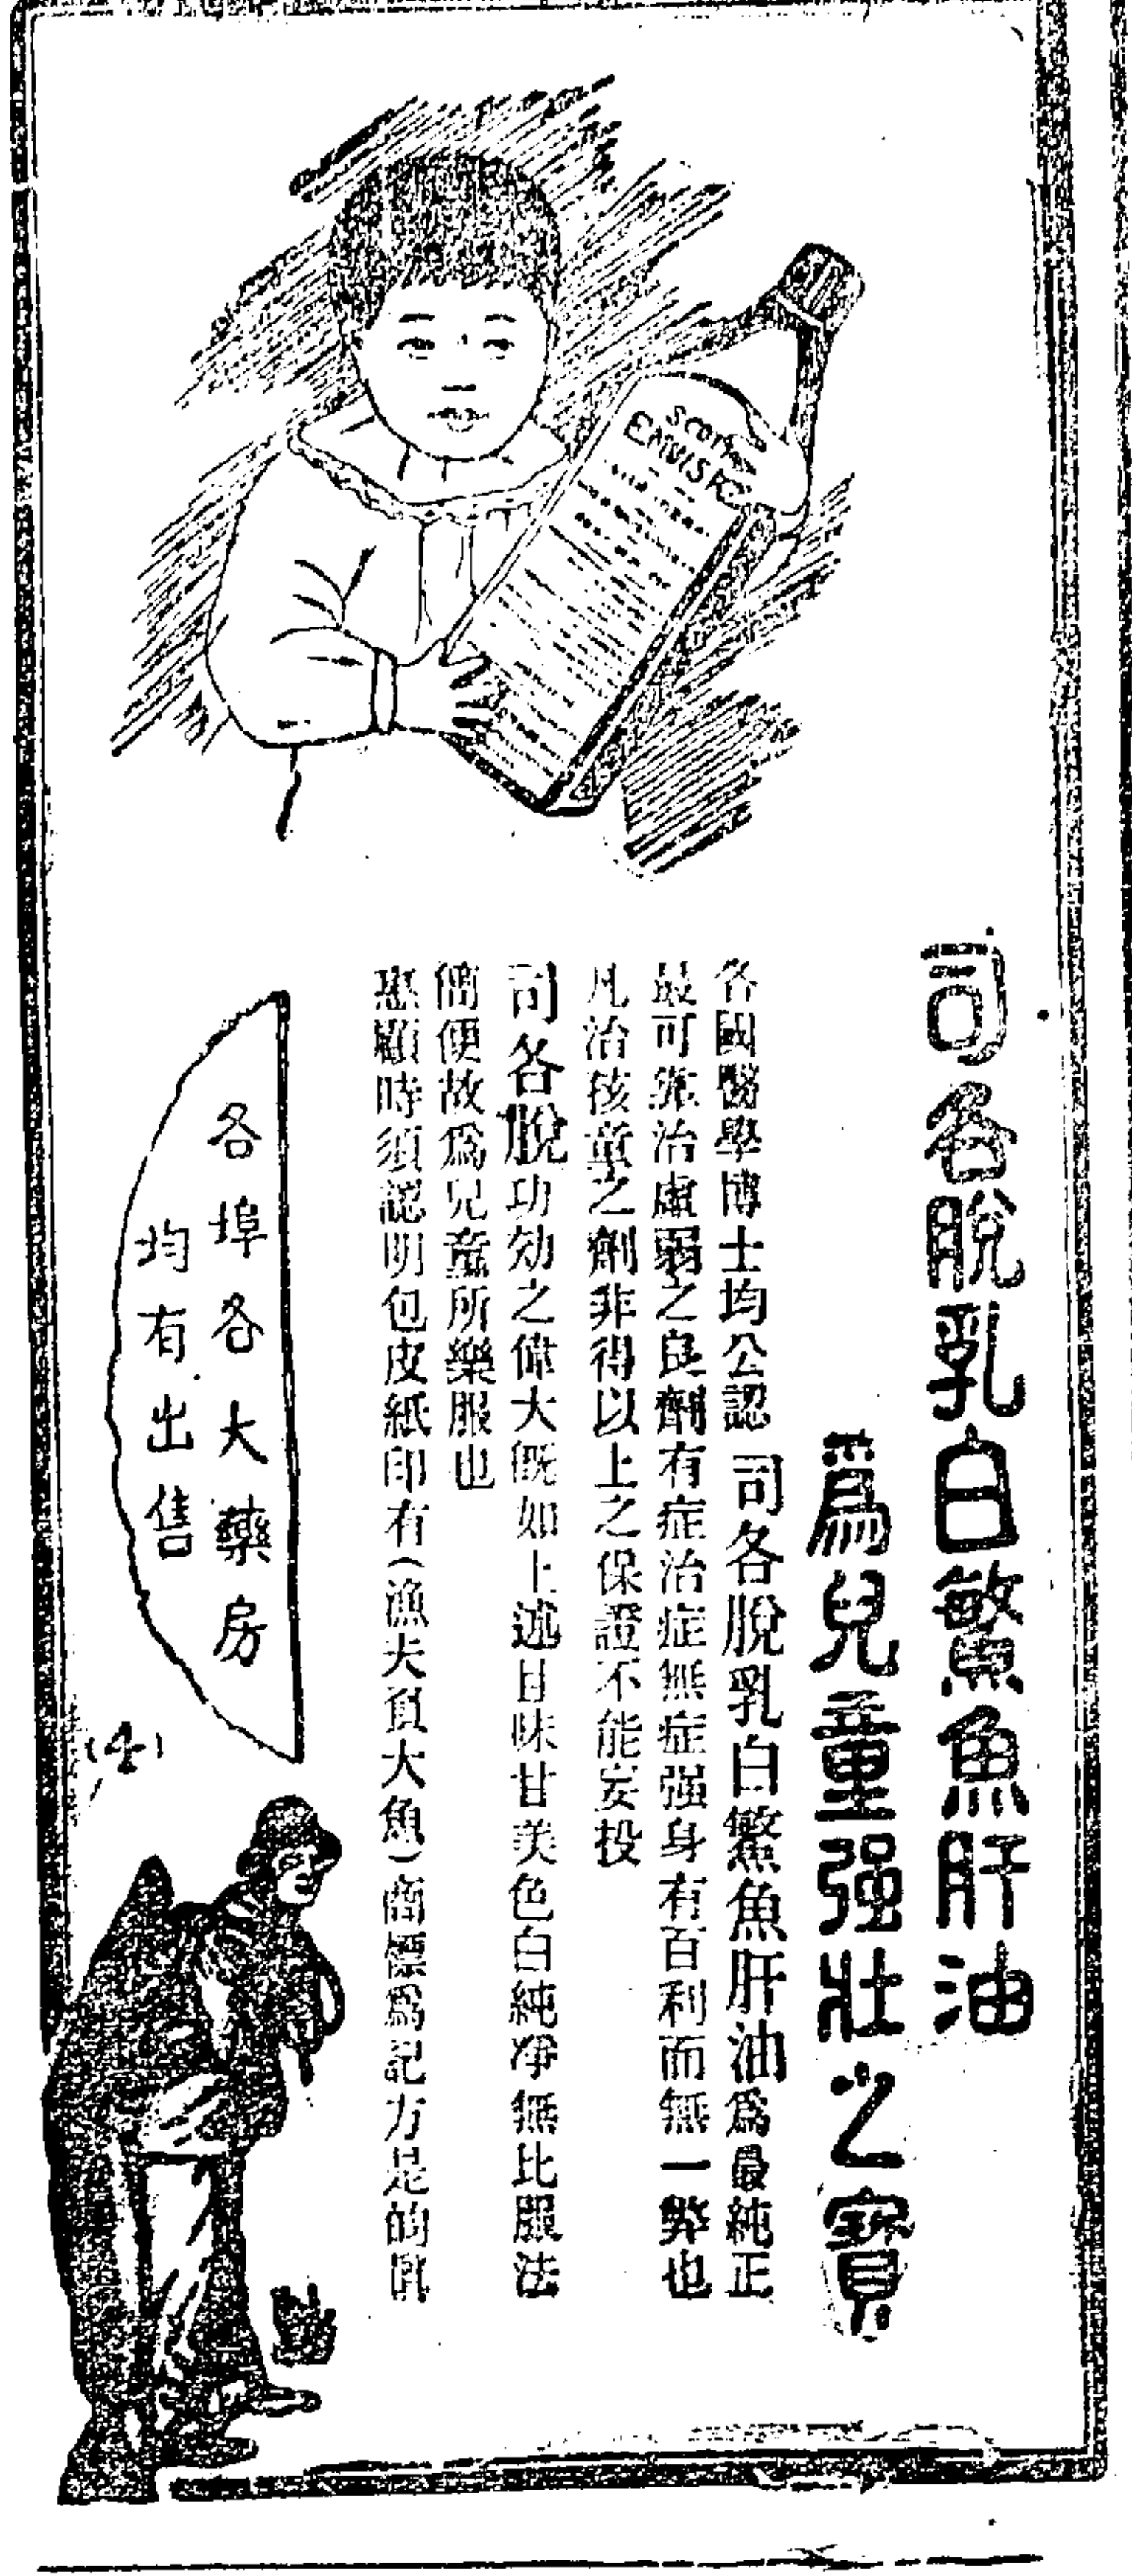 司各脫乳白鰵魚肝油
爲兒童强壯之寶
各國醫學博士均公認 司各脫乳白鰵魚肝油爲最純正
最可靠治虛弱之良劑有症治症無症强身有百利而無一弊也
凡治孩童之劑非得以上之保證不能妄投
司各脫功効之偉大旣如上述且味甘美色白純净無比服法
簡便故爲兒童所樂服也
惠顧時須認明包皮紙印有(漁夫負大魚)商標爲記方是的眞
各埠各大藥房
均有出售
(4)